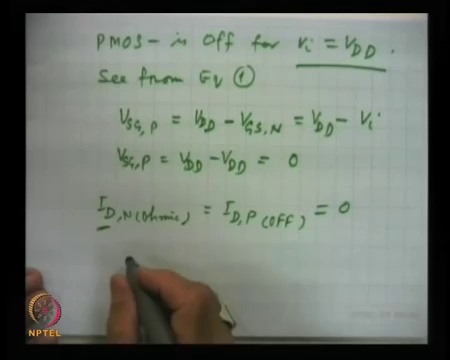 PMOS - is Off for Vi = VDD.
See from Eq ①
VSG,P = VDD - VGS,N = VDD - Vi
VSG,P = VDD - VDD = 0
ID,N(Ohmic) = ID,P(OFF) = 0
NPTEL